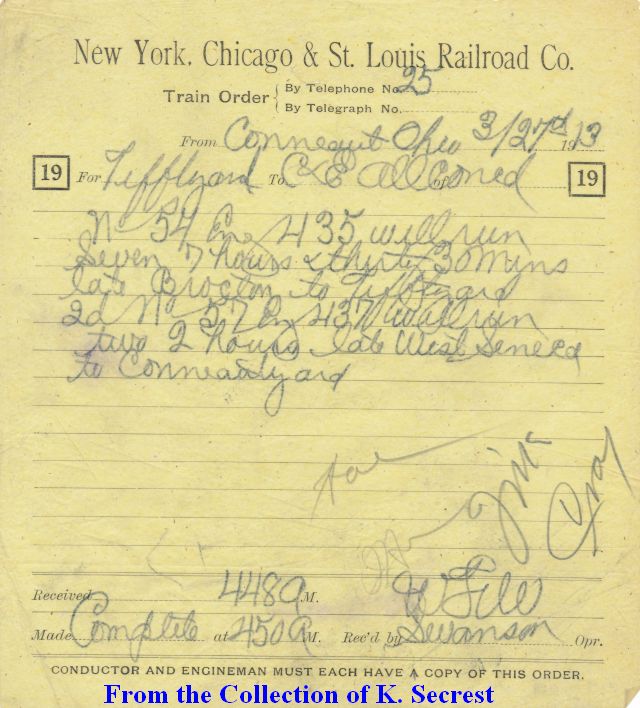 New York, Chicago & St. Louis Railroad Co.
Train Order { By Telephone No. 25
By Telegraph No.
From Conneaut Ohio 3/27th 1913
19 For Tifftyard To C&E All Concd 19
No 54 Eng 435 will run
Seven 7 hours & thirty 30 Mins
late Brocton to Tifftyard
2d No 57 Eng 437 will run
two 2 hours late West Seneca
to Conneautyard
Received 448 A M.
Made Complete at 450 A M. Rec'd by Swanson Opr.
CONDUCTOR AND ENGINEMAN MUST EACH HAVE A COPY OF THIS ORDER.
From the Collection of K. Secrest